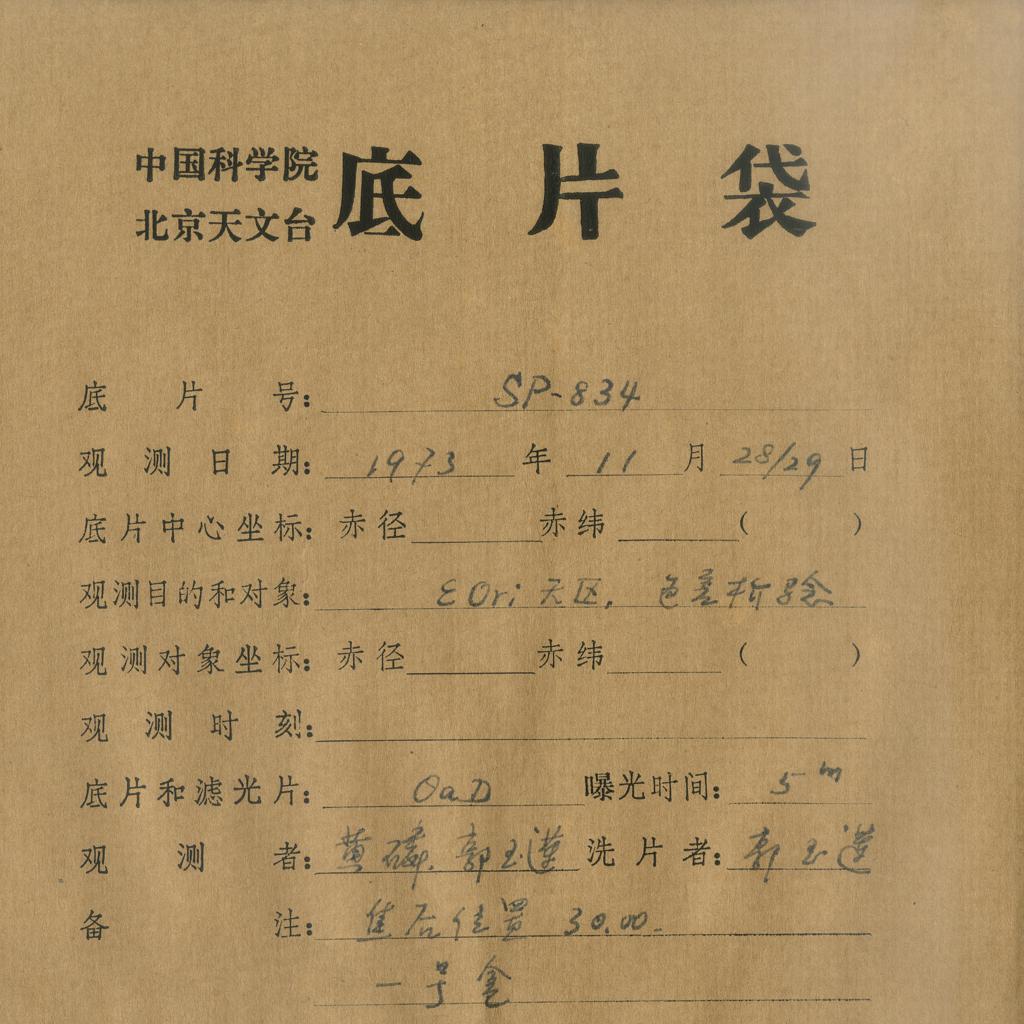 中国科学院
北京天文台
底片袋
底片号: SP-834
观测日期: 1973年11月28/29日
底片中心坐标: 赤径 赤纬 ( )
观测目的和对象: εOri天区, 色差析验
观测对象坐标: 赤径 赤纬 ( )
观测时刻:
底片和滤光片: OaD 曝光时间: 5m
观测者: 黄磷. 郭玉 洗片者: 郭玉
备注: 焦后位置 30.00.
一号盒